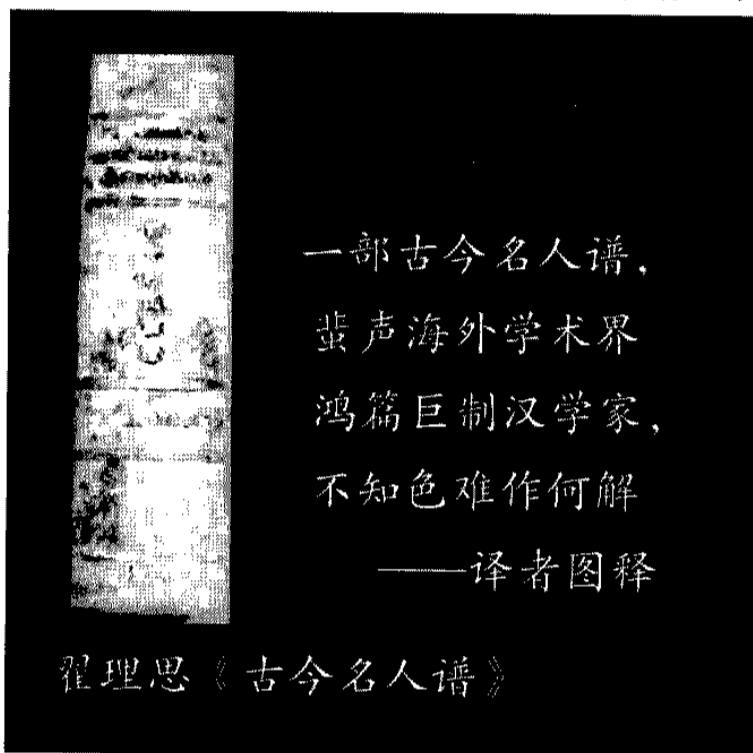 一部古今名人谱，
蜚声海外学术界
鸿篇巨制汉学家，
不知色难作何解
——译者图释
翟理思《古今名人谱》